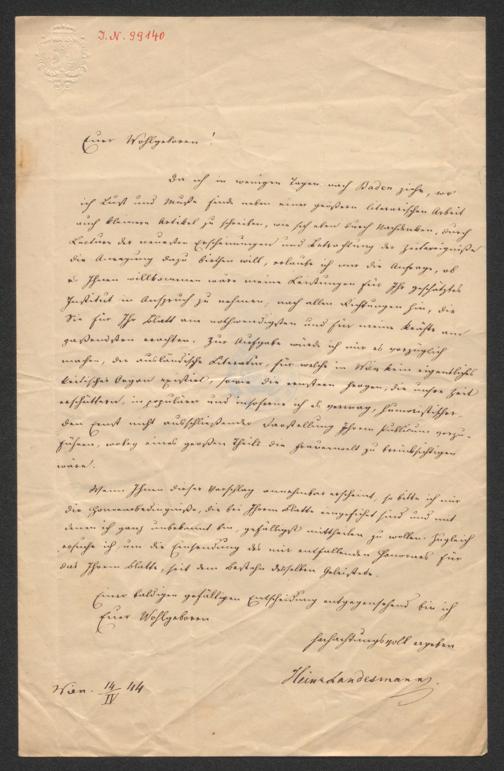 J.N. 99140
Euer Wohlgeboren!
Da ich in wenigen Tagen nach Baden ziehe, wo
ich Lust und Muße finde neben einer größern literarischen Arbeit
auch kleinere Artikel zu schreiben, wie sich eben durch Nachdenken, durch
Lecture der neuesten Erscheinungen und Betrachtung der Zeitereigniße
die Anregung dazu biethen will, erlaube ich mir die Anfrage, ob
es Ihnen willkommen wäre meine Leistungen für Ihr geschätztes
Institut in Anspruch zu nehmen, nach allen Richtungen hin, die
Sie für Ihr Blatt am nothwendigsten und für meine Kräfte am
passendsten erachten. Zur Aufgabe würde ich mir es vorzüglich
machen, die ausländische Literatur, für welche in Wien kein eigentliches
kritisches Organ existirt, sowie die ernstern Fragen, die unsre Zeit
erschüttern, in populärer und insoferne ich es vermag, humoristischer
den Ernst nicht ausschließender Darstellung Ihrem Publicum vorzu-
führen, wobey eines großen Theils die Frauenwelt zu berücksichtigen
wäre.
Wenn Ihnen dieser Vorschlag annehmbar erscheint, so bitte ich mir
die Honorarbedingniße, die bei Ihrem Blatte eingeführt sind und mit
denen ich ganz unbekannt bin, gefälligst mittheilen zu wollen. Zugleich
ersuche ich um die Einsendung des mir entfallenden Honorares für
das Ihrem Blatte, seit dem Bestehn desselben Geleistete.
Einer baldigen gefälligen Entscheidung entgegensehend bin ich
Euer Wohlgeboren
hochachtungsvoll ergeben
Heinr Landesmann.
Wien. 14/IV 44